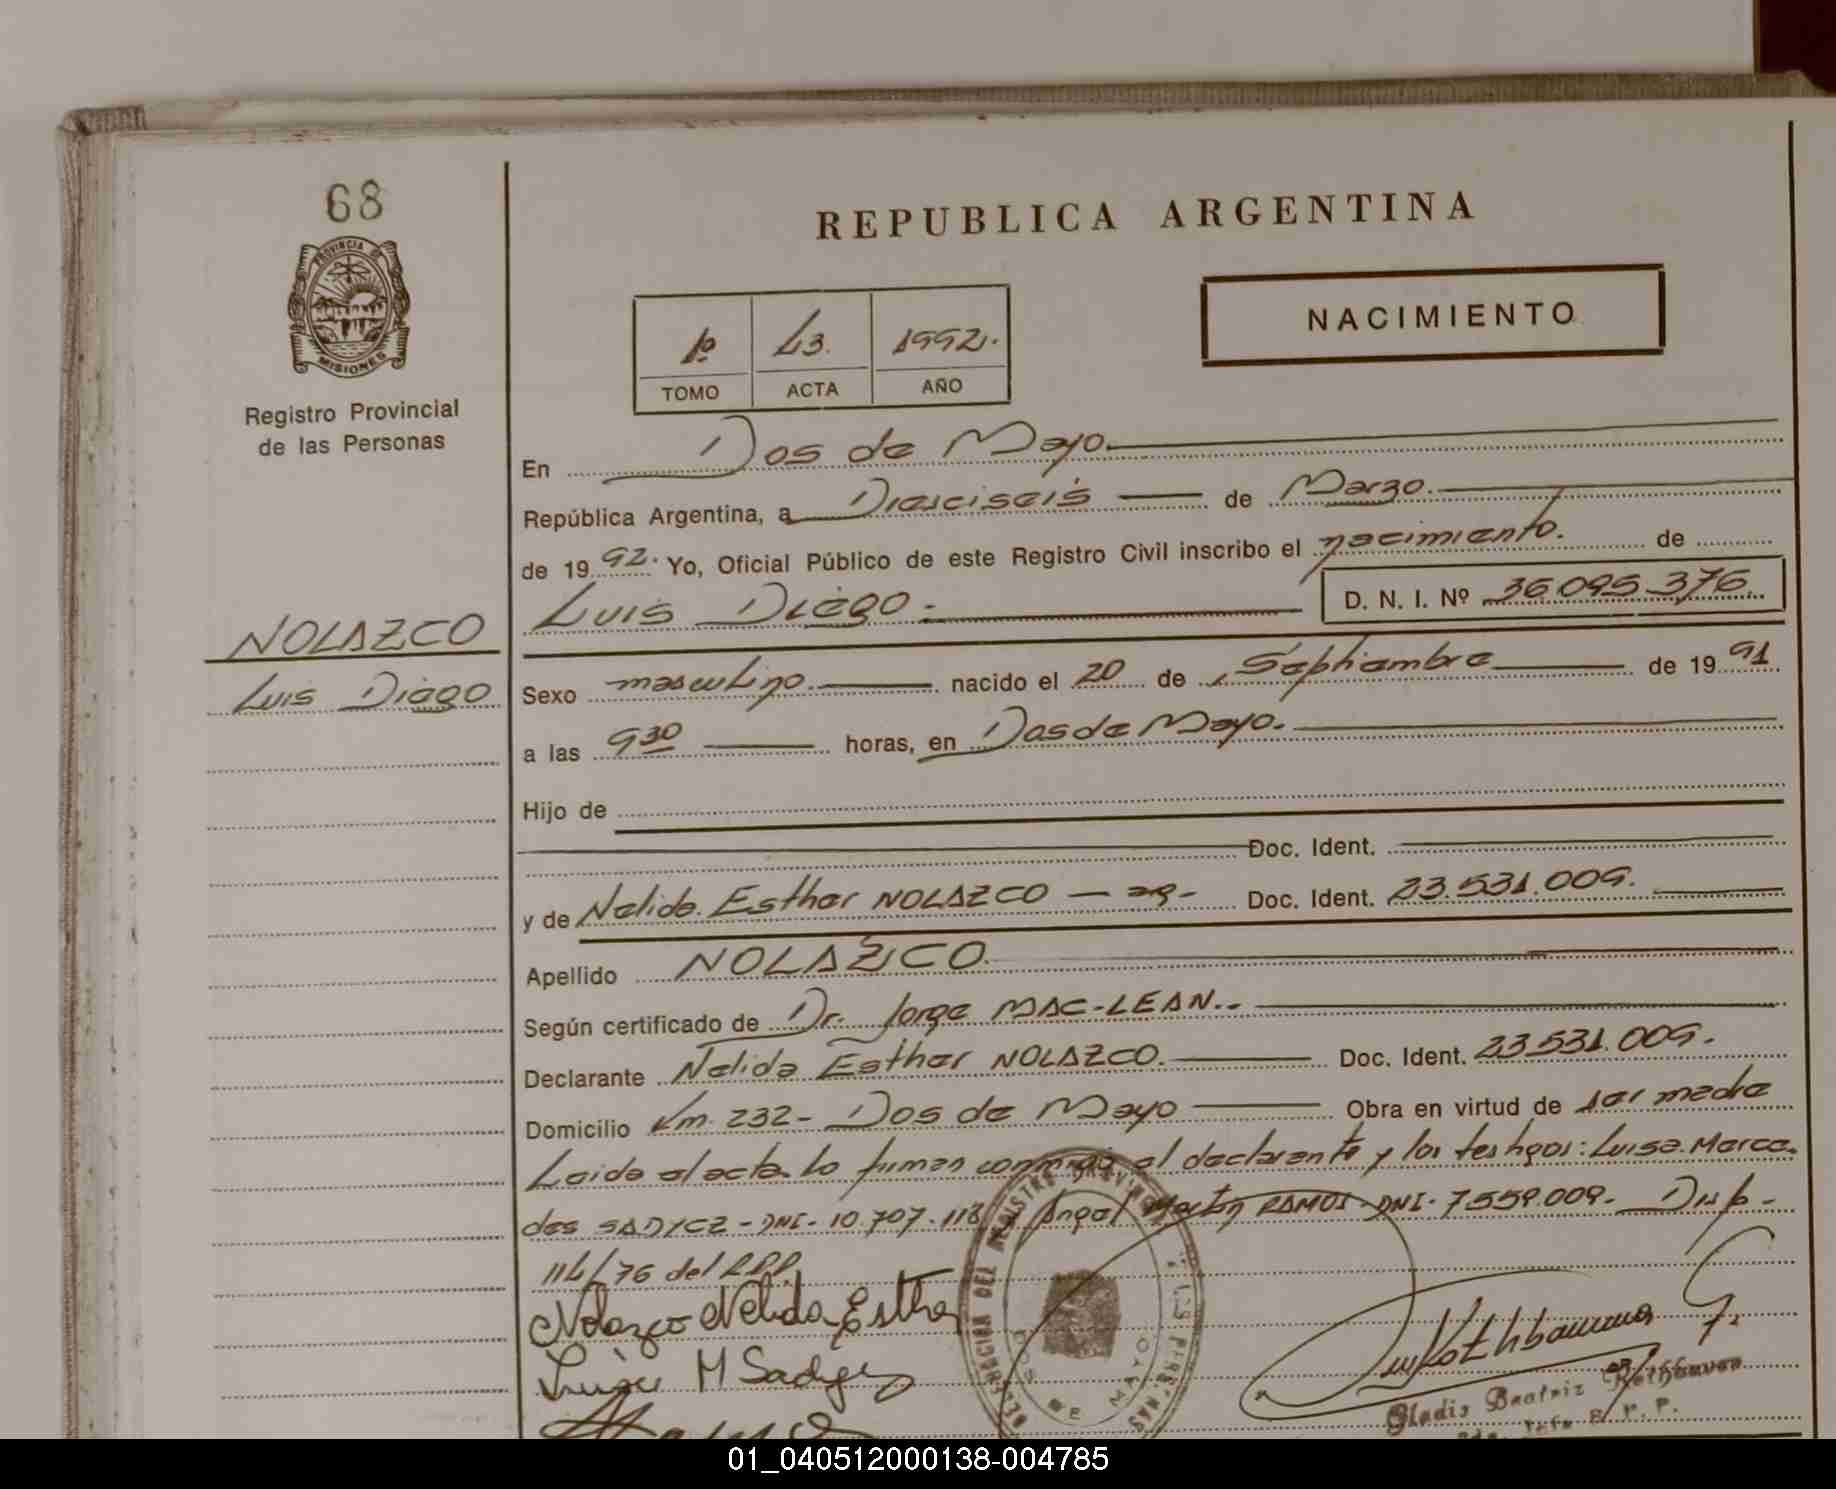 68
PROVINCIA DE
MISIONES
Registro Provincial
de las Personas
NOLAZCO
Luis Diego
REPUBLICA ARGENTINA
NACIMIENTO
1º 43. 1992.
TOMO ACTA AÑO
En Dos de Mayo.
República Argentina, a Dieciseis de Marzo.
de 1992. Yo, Oficial Público de este Registro Civil inscribo el nacimiento. de
Luis Diego.- D. N. I. Nº 36.095.376.
Sexo masculino. nacido el 20 de Septiembre de 1991
a las 9 30 horas, en Dos de Mayo.
Hijo de
Doc. Ident.
y de Nelida Esther NOLAZCO — Doc. Ident. 23.531.009.
Apellido NOLAZCO.
Según certificado de Dr. Jorge MAC-LEAN.-
Declarante Nelida Esther NOLAZCO. Doc. Ident. 23.531.009.
Domicilio Km. 232- Dos de Mayo Obra en virtud de ser madre
Leida el acta lo firman conmigo el declarante y los testigos: Luisa Merce-
des SADYCZ - DNI- 10.707.118 y Angel Martin RAMOS - DNI- 7.559.009. Disp-
114/76 del RPP.
Nolazco Nelida Esther
Luisa M Sadycz
DOS DE MAYO
Gladis Beatriz Rothbauer
R. P. P.
01_040512000138-004785